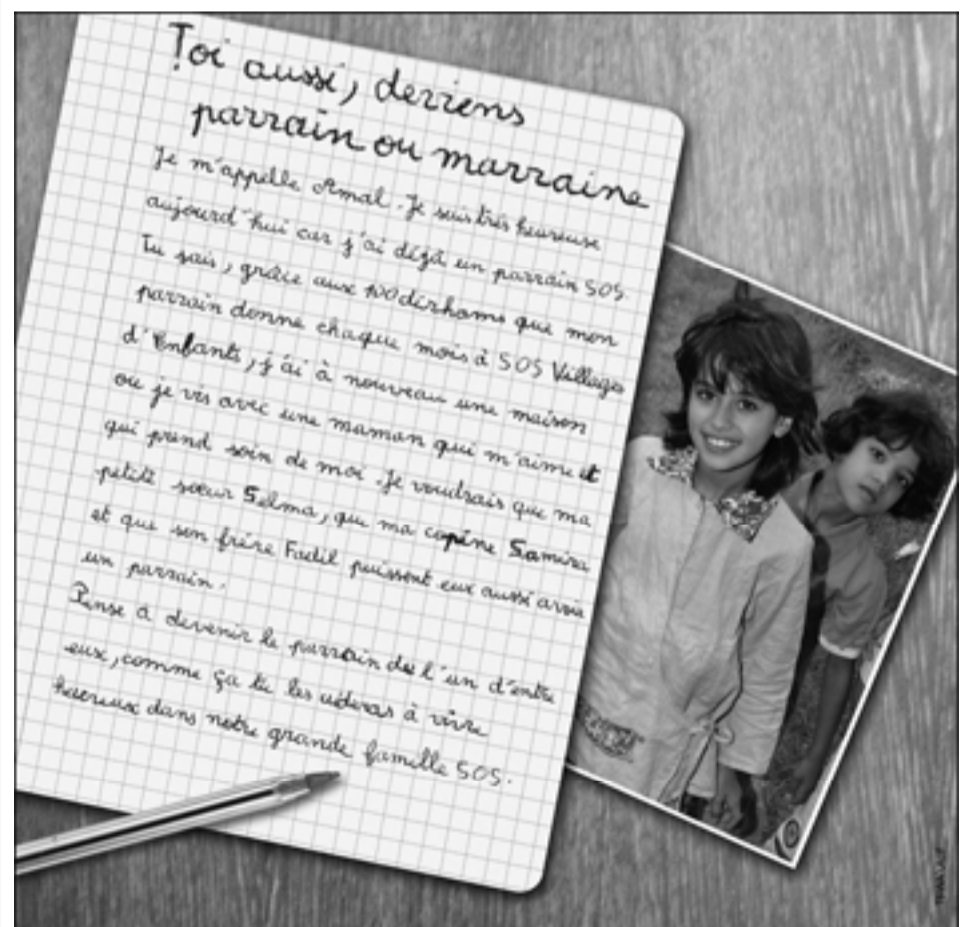 Toi aussi, deviens
parrain ou marraine
Je m'appelle Amal. Je suis très heureuse
aujourd'hui car j'ai déjà un parrain SOS.
Tu sais, grâce aux 100 dirhams que mon
parrain donne chaque mois à SOS Villages
d'Enfants, j'ai à nouveau une maison
ou je vis avec une maman qui m'aime et
qui prend soin de moi. Je voudrais que ma
petite sœur Selma, que ma copine Samira
et que son frère Fadil puissent eux aussi avoir
un parrain.
Pense à devenir le parrain de l'un d'entre
eux, comme ça tu les aideras à vivre
heureux dans notre grande famille SOS.